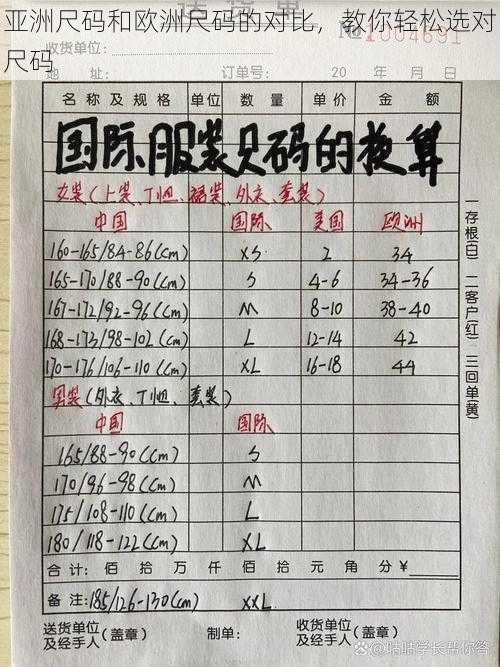 亚洲尺码和欧洲尺码的对比，教你轻松选对尺码
送货单
收货单位:
№1004691
订单号: 20 年 月 日
名称及规格 单位 数量 单价 金额
国际服装尺码的换算
女装(上装、T恤、裙装、外衣、套装)
中国 国际 美国 欧洲
160-165/84-86(cm) XS 2 34
165-170/88-90(cm) S 4-6 34-36
167-172/92-96(cm) M 8-10 38-40
168-173/98-102(cm) L 12-14 42
170-176/106-110(cm) XL 16-18 44
男装(外衣、T恤、套装)
中国 国际
165/88-90(cm) S
170/96-98(cm) M
175/108-110(cm) L
180/118-122(cm) XL
合计: 佰 拾 万 仟 佰 拾 元 角 分¥
备注: 185/126-130(cm) XXL
送货单位及经手人(盖章) 制单: 收货单位及经手人(盖章)
一存根(白) 二客户(红) 三回单(黄)
@咕咕学长帮你答